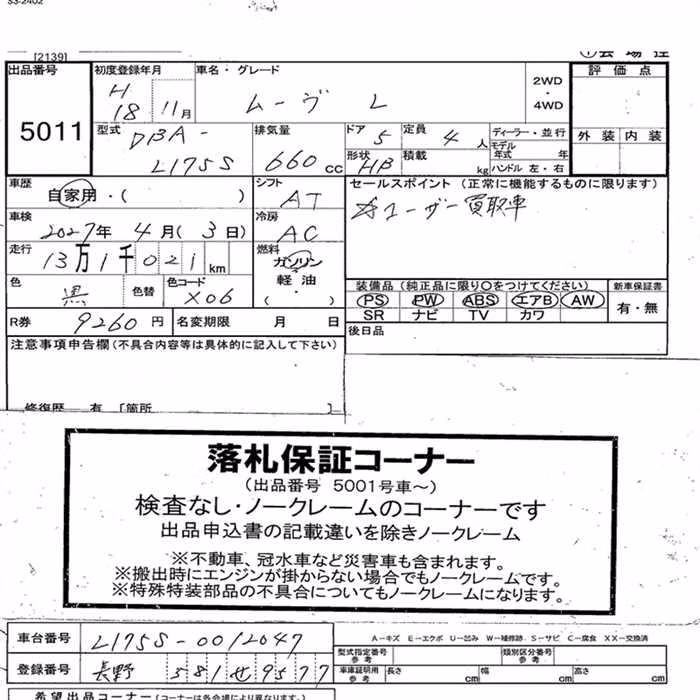 S3-2402
[2139]
出品番号 初度登録年月 車名・グレード 評価点
5011 H 18 11月 ムーヴ L 2WD・4WD
外装 内装
型式 DBA-L175S 排気量 660cc ドア 5 定員 4人 ディーラー・並行
モデル年式 年
形状 HB 積載 kg ハンドル 左・右
車歴 自家用・( ) シフト AT セールスポイント (正常に機能するものに限ります)
☆ユーザー買取車
車検 2027年4月(3日) 冷房 AC
走行 13万1千021km 燃料 ガソリン・軽油・( )
色 黒 色替 色コード X06 装備品 (純正品に限り○をつけてください) 新車保証書
PS PW ABS エアB AW 有・無
SR ナビ TV カワ
R券 9260円 名変期限 月 日 後日品
注意事項申告欄(不具合内容等は具体的に記入して下さい)
修復歴 有 [箇所 ]
落札保証コーナー
(出品番号 5001号車~)
検査なし・ノークレームのコーナーです
出品申込書の記載違いを除きノークレーム
※不動車、冠水車など災害車も含まれます。
※搬出時にエンジンが掛からない場合でもノークレームです。
※特殊特装部品の不具合についてもノークレームになります。
車台番号 L175S-0012047
A-キズ E-エクボ U-凹み W-補修跡 S-サビ C-腐食 XX-交換済
型式指定番号 参考 類別区分番号 参考
登録番号 長野 581 せ 9577
車庫証明用 参考 長さ cm 幅 cm 高さ cm
希望出品コーナー(コーナーは各会場により異なります。)